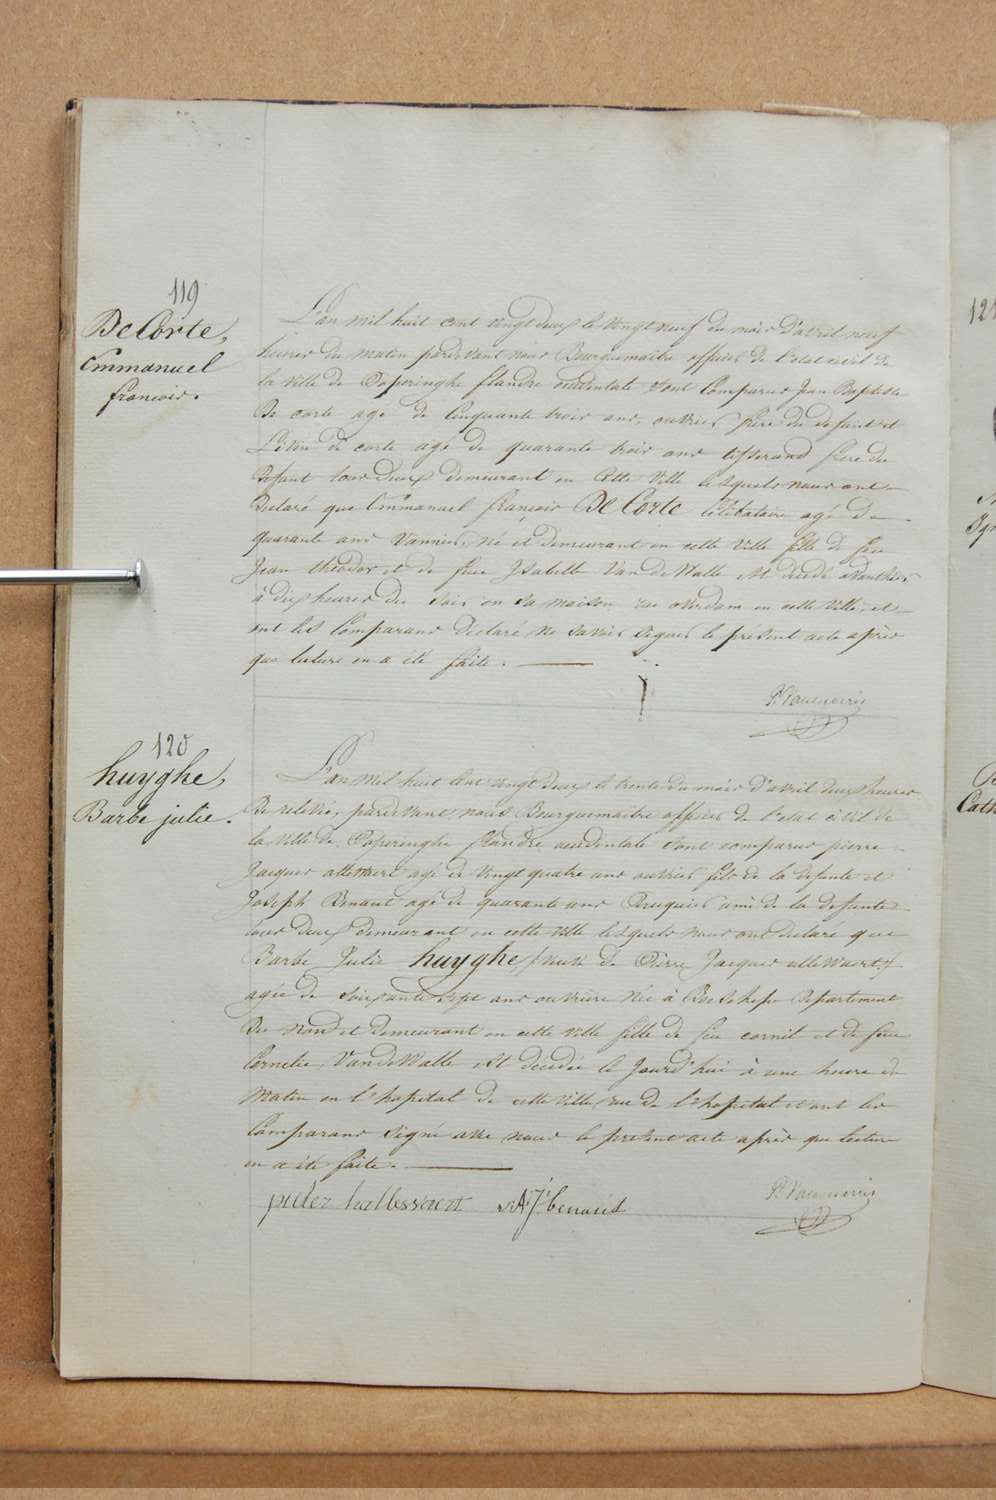 119
De Corte,
Emmanuel
francois.
L'an mil huit cent vingt deux le vingt neuf du mois d'avril neuf
heures du matin pardevant nous Bourguemaitre officier de l'etat civil de
la ville de Poperinghe flandre occidentale sont comparus Jean Baptiste
De corte agé de Cinquante trois ans, ouvrier frere du defunt et
Livin de corte agé de quarante trois ans tisserand frere du
defunt tous deux demeurant en cette ville lesquels nous ont
declaré que Emmanuel françois De Corte Célibataire agé de
quarante ans Vannier, né et demeurant en cette ville fils de feu
Jean theodor et de feue Isabelle Van de Walle est decedé avanthier
à dix heures du soir en sa maison rue overdam en cette ville, et
ont les Comparans declaré ne savoir signer le présent acte après
que lecture en a été faite.
120
huyghe,
Barbe julie.
L'an mil huit cent vingt deux le trente du mois d'avril deux heures
De relevée, pardevant nous Bourguemaitre officier de l'etat civil de
la ville de Poperinghe flandre occidentale sont comparus pierre
Jacques allewaert agé de vingt quatre ans ouvrier fils de la defunte et
Joseph Benaut agé de quarante ans Peruquier ami de la defunte
tous deux demeurant en cette ville lesquels nous ont declaré que
Barbe Julie huyghe, veuve de Pierre Jacques allewaert
agée de soixante sept ans ouvrière née à Boeschepe Departement
du nord et demeurant en cette ville fille de feu cornil et de feue
Cornelie Van de Walle est décédée le Jourd'hui à une heure du
Matin en l'hopital de cette ville rue de l'hopital et ont les
Comparans signé avec nous le présent acte après que lecture
en a été faite.
121
Cath